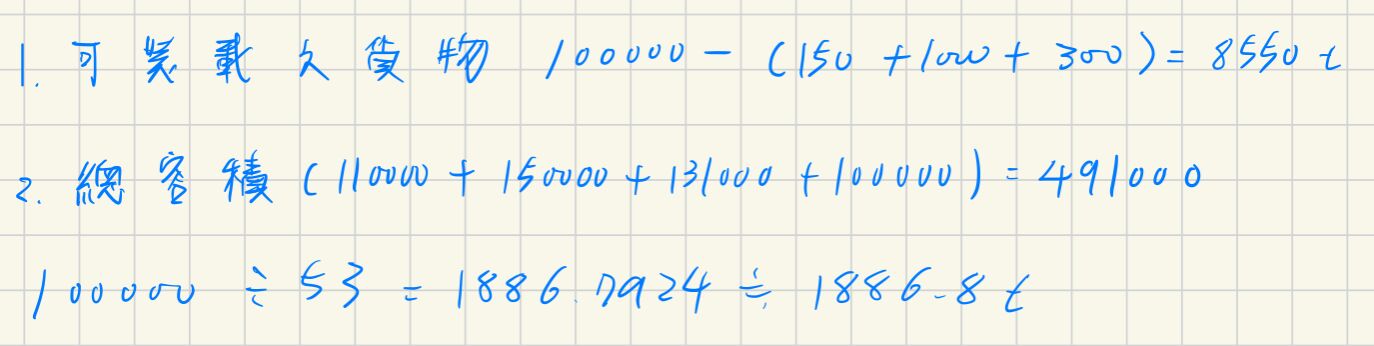 1. 可裝載之貨物 100000 - (150 + 1000 + 300) = 8550 t
2. 總容積 (110000 + 150000 + 131000 + 100000) = 491000
100000 ÷ 53 = 1886.7924 ≒ 1886.8 t